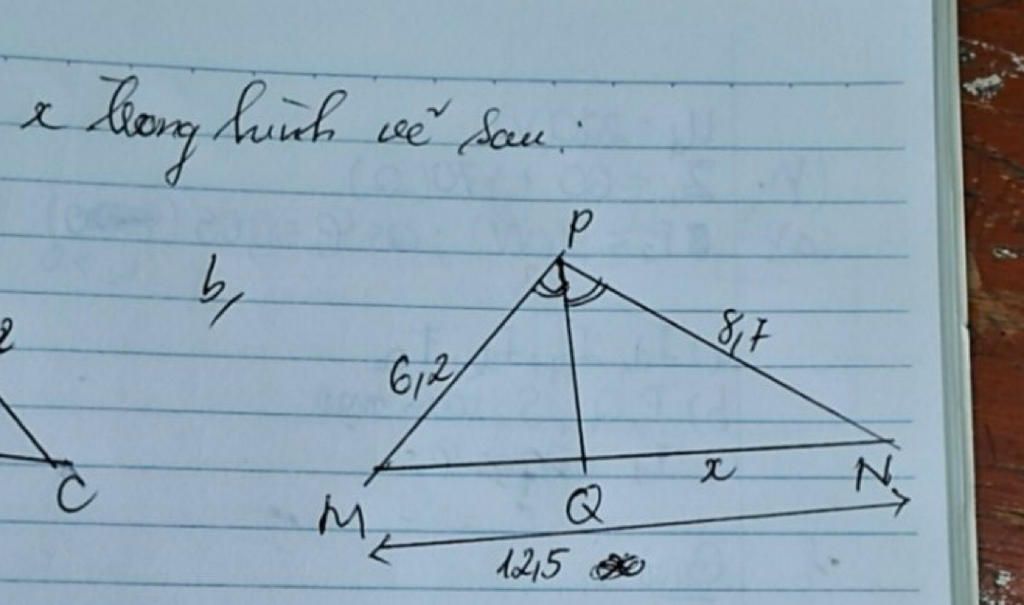 x trong hình vẽ sau:
b,
P
6,2
8,7
2
x
C
M
Q
N
12,5